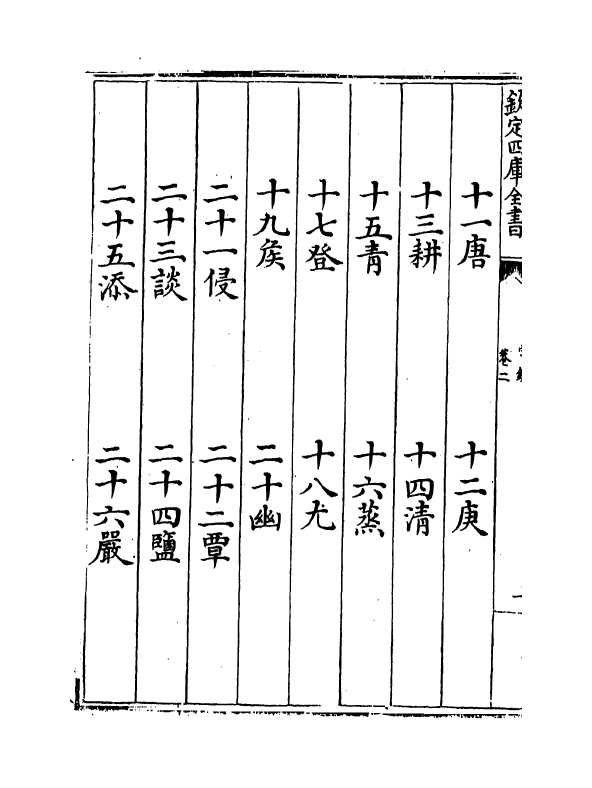 欽定四庫全書
卷二
十一唐 十二庚
十三耕 十四清
十五青 十六蒸
十七登 十八尤
十九矦 二十幽
二十一侵 二十二覃
二十三談 二十四鹽
二十五添 二十六嚴